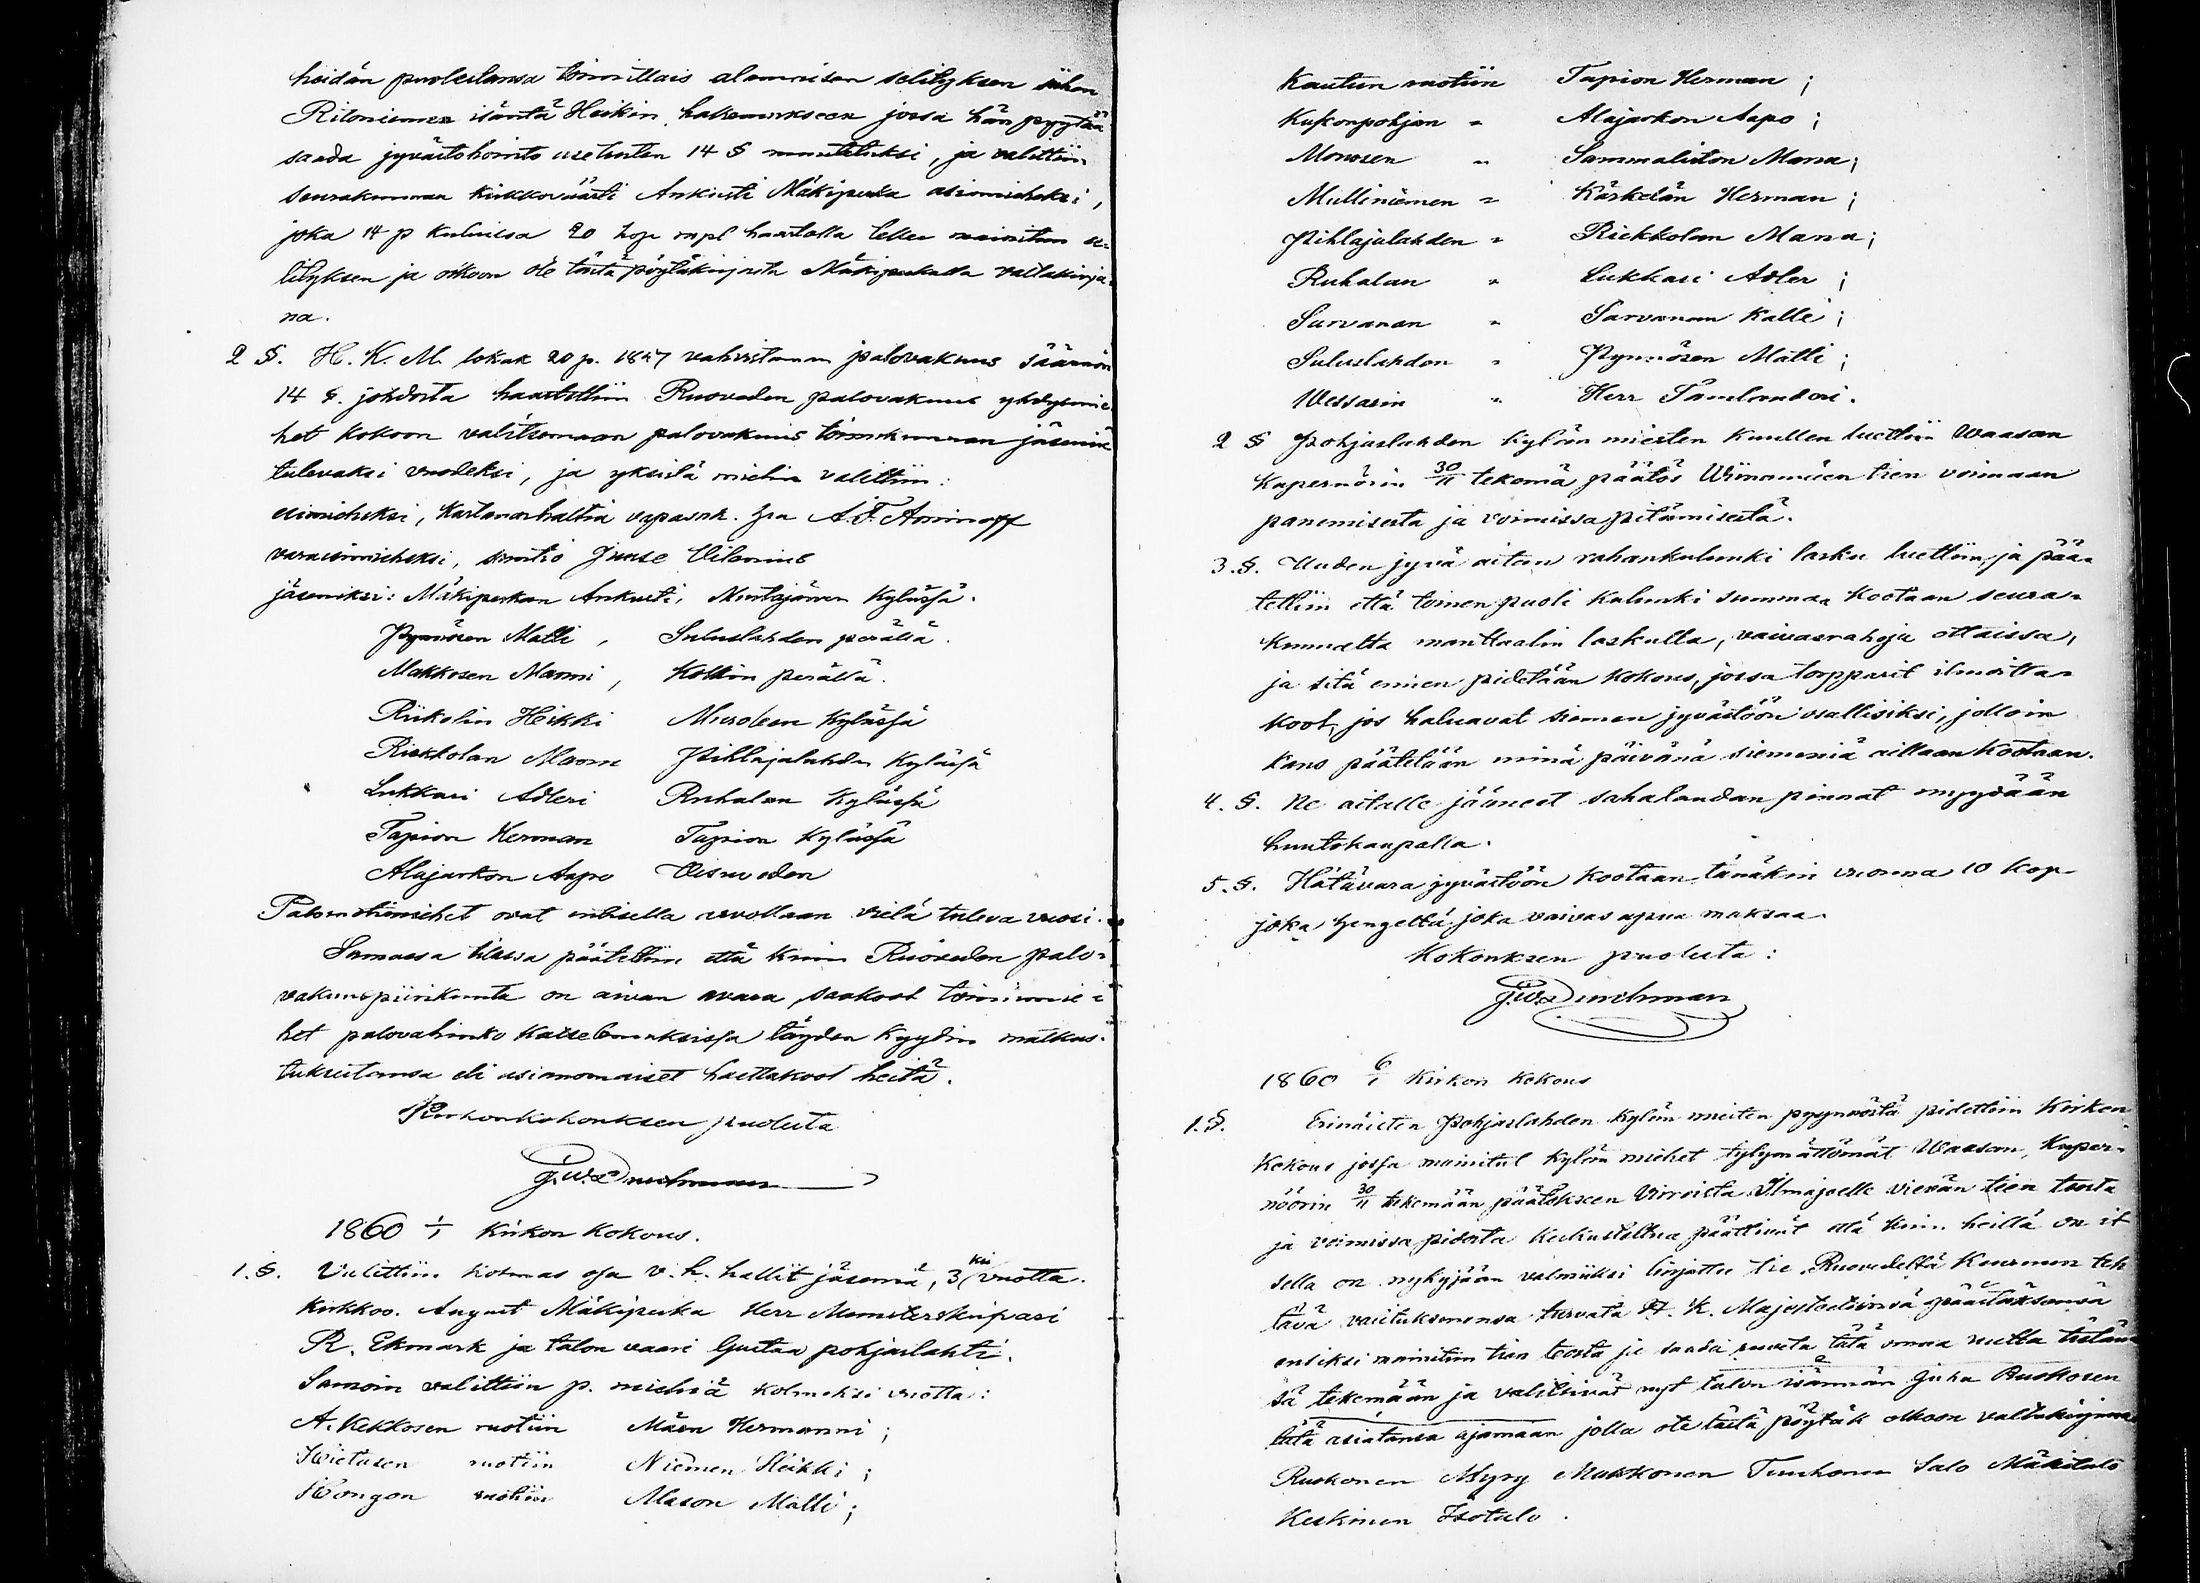 heidän puolestansa toimittais alamaisen selityksen siihen
Ritoniemen isäntä Heikin hakemukseen jossa hän pyytää
saada jyvästohoito asetusten 14 § muutetuksi, ja valittiin
seurakunnan kirkkoväärti Ankusti Mäkipeska asiamieheksi,
joka 14 p kuluissa 20 hop rupl haastolla tekee mainitun se-
lityksen ja olkoon ote tästä pöytäkirjasta Mäkipeskalla valtakirja-
na.
2 §. H. K. M. lokak 20 p. 1847 vahvistaman palovakuus säännön
14 §. johdosta haastettiin Ruoveden palovakuus yhdysmie-
het kokoon valitsemaan palovakuus toimikunnan jäseniä
tulevaksi vuodeksi, ja yksistä mielin valittiin:
esimieheksi, Kartanonhaltia vapasuk. hra A. F. Aminoff
varaesimieheksi, Juuse Vilenius
jäseniksi: Mäkipeskan Ankusti, Mustajärven kylässä.
Pynnösen Matti, Suluslahden perällä.
Makkosen Manni, Kottin perällä.
Riikolin Heikki Muroleen kylässä
Riekkolan Manu Pihlajalahden kylässä
Lukkari Adleri Ruhalan kylässä
Tapion Herman Tapion kylässä
Alajarkon Aapo Visuveden
Palovotimiehet ovat entisella arvollaan vielä tuleva vuosi.
Samassa tilassa päätettiin että kuin Ruoveden palo-
vakuuspiirikunta on aivan avara, saakoot toimimie-
het palovahinko katselmuksissa täyden kyydin matkus-
tuksistansa eli asianomaiset haettakoot heitä.
Kirkonkokouksen puolesta
J. W. Durchman
1860 1/1 Kirkon kokous.
1. §. Valittiin kolmas osa v. h. hallit jäseniä, 3 ksi vuotta.
kirkkov. August Mäkipeska Herr Munsterskrifvari
R. Ekmark ja talon vaari Gustaa pohjaslahti.
Samoin valittiin p. miehiä kolmeksi vuotta:
A. Kekkosen ruotiin Mäen Hermanni;
Hietasen ruotiin Niemen Heikki;
Hongon ruotiin Alason Matti;
Kautun ruotiin Tapion Herman;
Kukonpohjan " Alajarkon Aapo;
Monosen " Sammaliston Manu;
Mulliniemen " Kärkelän Herman;
Pihlajalahden " Riekkolan Manu;
Ruhalan " Lukkari Adler;
Sarvanan " Sarvanan Kalle;
Suluslahden " Pynnösen Matti;
Wessarin " Herr Tamlanderi.
2 § Pohjaslahden kylän miesten kuullen luettiin Waasan
kupernörin 30/11 tekemä päätös Wiinamäen tien voimaan
panemisesta ja voimissa pitämisestä.
3. §. Uuden jyvä aitan rahankulunki lasku luettiin, ja pää-
tettiin että toinen puoli kulunki summaa kootaan seura-
kunnalta manttaalin laskulla, vaivasrahoja ottaissa,
ja sitä ennen pidetään kokous, jossa torpparit ilmoitta-
koot, jos haluavat siemen jyvästöön osallisiksi, jolloin
kans päätetään minä päivänä siemeniä aittaan kootaan.
4. §. Ne aitalle jääneet sahalaudan pinnat myydään
huutokaupalla.
5. §. Hätävara jyvästöön kootaan tänäkin vuonna 10 kap-
joka hengeltä joka vaivasapua maksaa.
Kokouksen puolesta:
J. W. Durchman
1860 6/1 Kirkon kokous
1. §. Erinäisten Pohjaslahden kylän miesten pyynnöstä pidettiin Kirkon
kokous jossa mainitut kylän miehet tytymättömät Waasan, Kuper-
nöörin 30/11 tekemään päätökseen Virroista Ilmajoelle vievän tien teosta
ja voimissa pidosta keskusteltua päättivät että kuin heillä on it
sellä on nykyjään valmiiksi linjattu tie Ruovedeltä Keuruun teh
tävä vaituksenensa turvata H. K. Majesteetiinsä päästäksensä
ensiksi mainitun tien teosta ja saada ruveta tätä omaa uutta tietäns
sä tekemään ja valitsivat nyt talon isännän Juha Ruskosen
tätä asiatansa ajamaan jolla ote tästä pöytäk olkoon valtakirjana
Ruskonen Myry Makkonen Tuuhonen Salo Mäkitalo
Keskinen Isotalo.